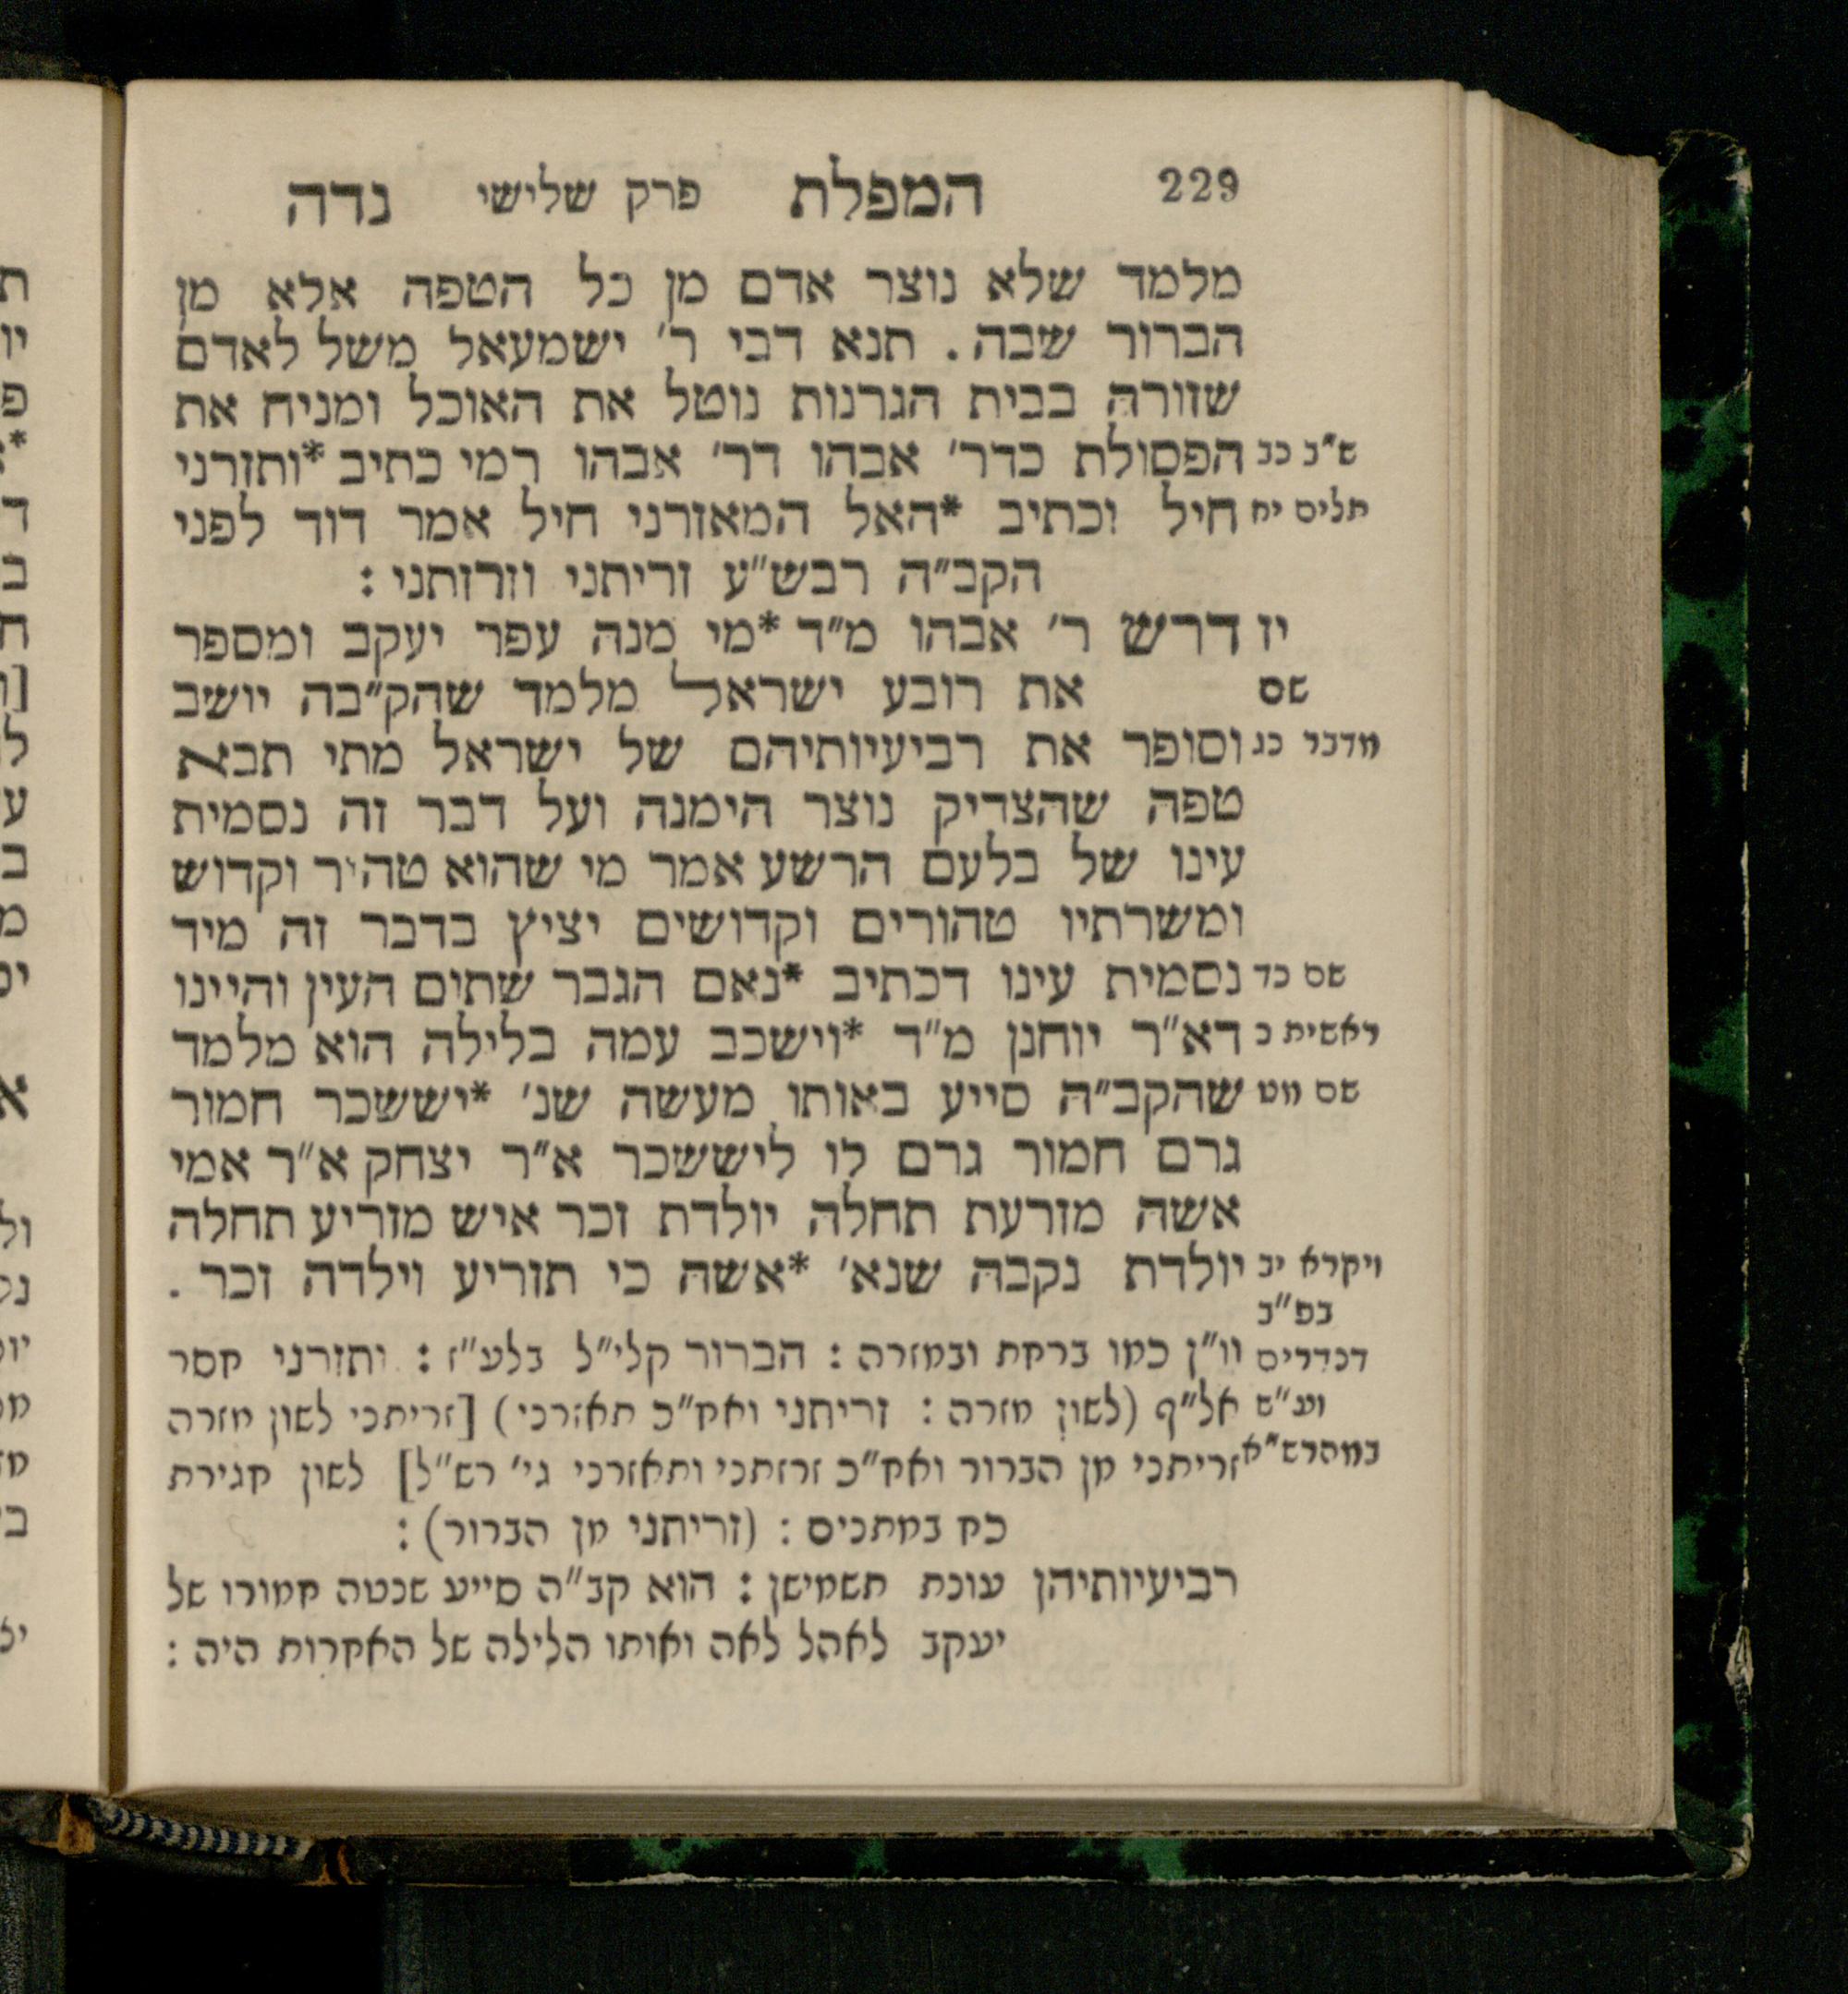 229 המפלת פרק שלישי נדה
מלמד שלא נוצר אדם מן כל הטפה אלא מן
הברור שבה. תנא דבי ר׳ ישמעאל משל לאדם
שזורה בבית הגרנות נוטל את האוכל ומניח את
ש״ב כב הפסולת כדר׳ אבהו דר׳ אבהו רמי כתיב *ותזרני
תלים יח חיל וכתיב *האל המאזרני חיל אמר דוד לפני
הקב״ה רבש״ע זריתני וזרזתני:
יז דרש ר׳ אבהו מ״ד *מי מנה עפר יעקב ומספר
שם את רובע ישראל מלמד שהק״בה יושב
מדבר כג וסופר את רביעיותיהם של ישראל מתי תבא
טפה שהצדיק נוצר הימנה ועל דבר זה נסמית
עינו של בלעם הרשע אמר מי שהוא טהור וקדוש
ומשרתיו טהורים וקדושים יציץ בדבר זה מיד
שם כד נסמית עינו דכתיב *נאם הגבר שתום העין והיינו
ראשית ל דא״ר יוחנן מ״ד *וישכב עמה בלילה הוא מלמד
שם מט שהקב״ה סייע באותו מעשה שנ׳ *יששכר חמור
גרם חמור גרם לו ליששכר א״ר יצחק א״ר אמי
אשה מזרעת תחלה יולדת זכר איש מזריע תחלה
ויקרא יב יולדת נקבה שנא׳ *אשה כי תזריע וילדה זכר.
בפ״ב
דנדרים וו״ן כמו ברחת ובמזרה: הברור קלי״ל בלע״ז: ותזרני חסר
וע״ש אל״ף (לשון מזרה: זריתני ואח״כ תאזרני) [זריתני לשון מזרה
במהרש״א זריתני מן הברור ואח״כ זרזתני ותאזרני גי׳ רש״ל] לשון חגירת
כח במתנים: (זריתני מן הברור):
רביעיותיהן עונת תשמישן: הוא קב״ה סייע שנטה חמורו של
יעקב לאהל לאה ואותו הלילה של האחרות היה: